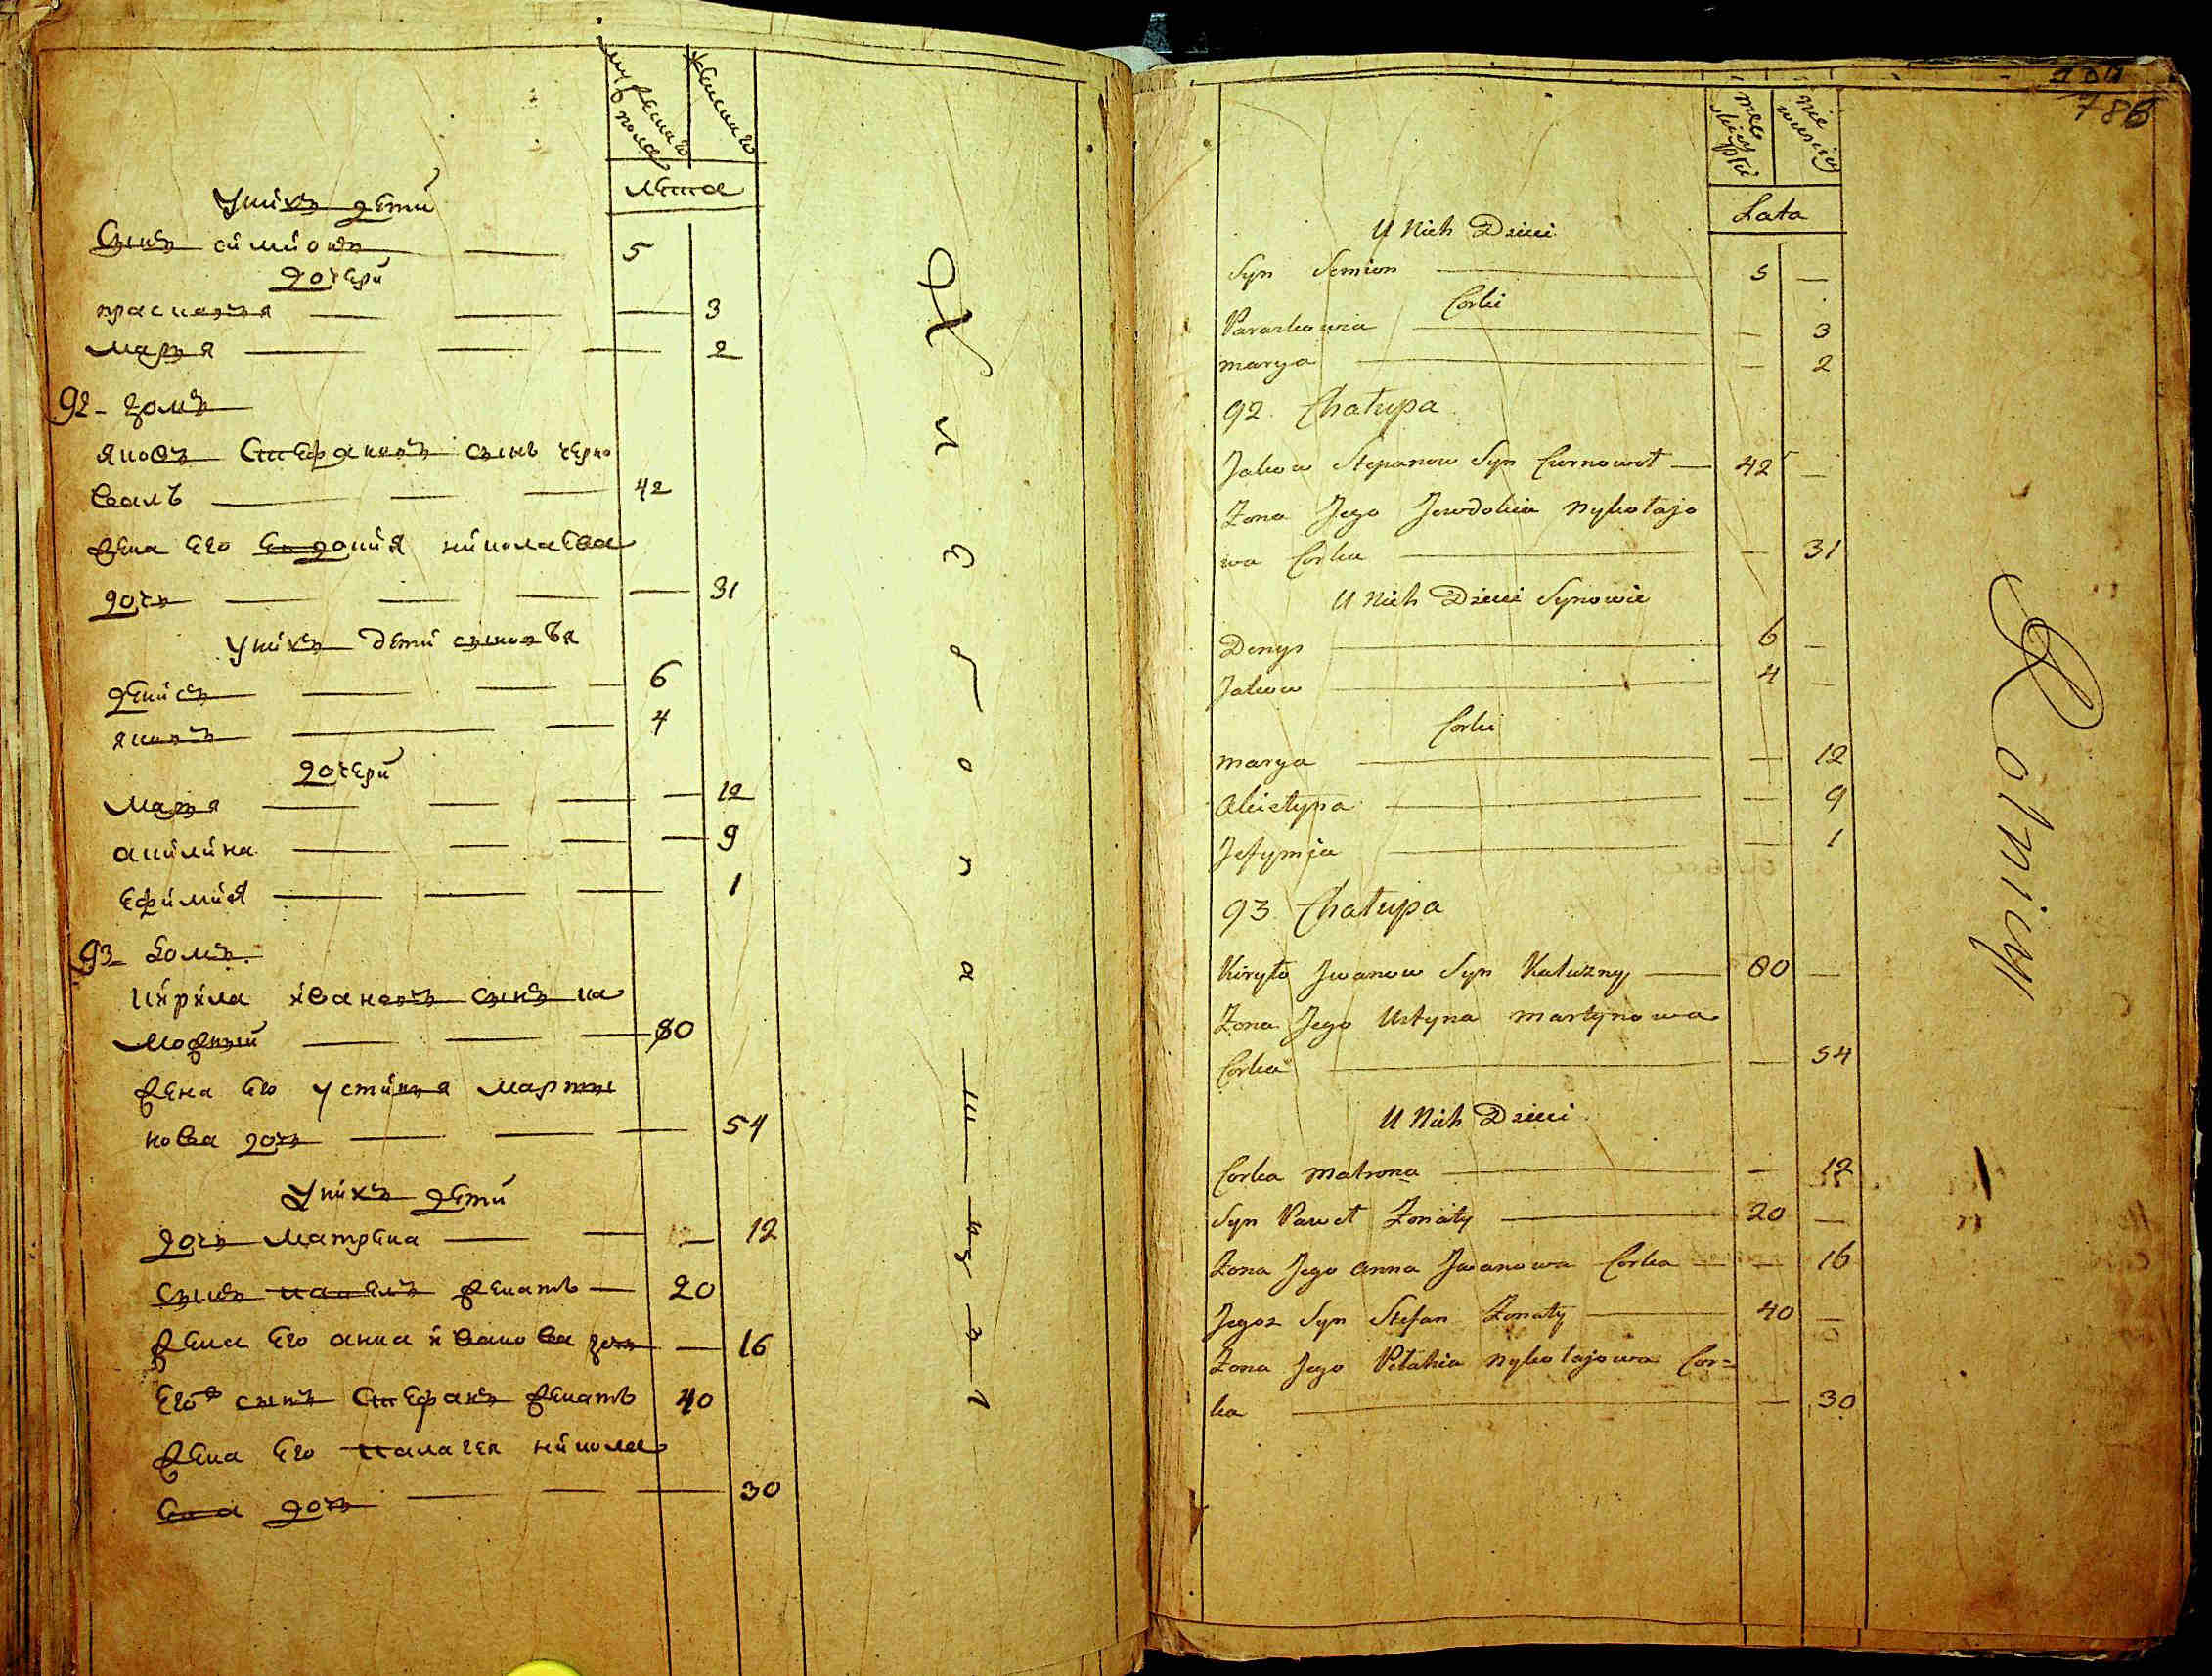 мужеска пола
женска
лета
У них дети
Сынъ симионъ 5
дочери
прасковья 3
марья 2
92 - домъ
яковъ Стефановъ сынъ черно
валъ 42
жена его евдокия николаева
дочь 31
У нихъ дети сыновья
денисъ 6
яковъ 4
дочери
марья 12
акилина 9
ефимия 1
93 - домъ
кирила ивановъ сынъ ка
60
жена его устинья марты
нова дочь 54
У нихъ дети
дочь матрена 12
сынъ павелъ женатъ 20
жена его анна иванова дочь 16
его ж сынъ Стефанъ женатъ 40
жена его палагея никола
ева дочь 30
786
Męs kiey płci
Nie wiesciey
Lata
U Nich Dzieci
Syn Semion 5 —
Corki
Paraskowia — 3
Marya — 2
92. Chałupa
Jakow Stepanow Syn Czrnowoł 42 —
Zona Jego Jewdokia Mykołajo
wa Corka — 31
U Nich Dzieci Synowie
Denys 6 —
Jakow 4 —
Corki
Marya — 12
Akietyna — 9
Jefymia — 1
93 Chałupa
Kiryło Jwanow Syn Kałużny 60 —
Zona Jego Ustyna Martynowa
Corka — 54
U Nich Dzieci
Corka Matrona — 12
Syn Paweł Zonaty 20 —
Zona Jego Anna Jwanowa Corka — 16
Jegoz Syn Stefan Zonaty 40 —
Zona Jego Pełahia Mykołajowa Cor=
ka — 30
Rolnicy